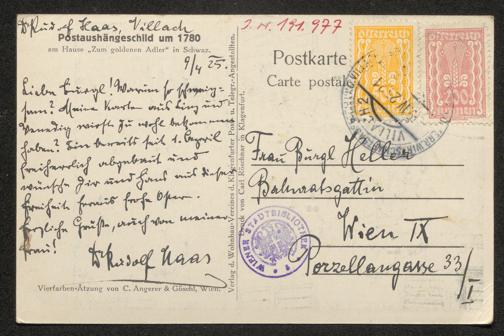 Dr Rudolf Haas, Villach
Postaushängeschild um 1780
am Hause „Zum goldenen Adler“ in Schwaz.
9/4 25.
Liebe Burgl! Warum so schweig-
sam? Meine Karten aus Linz und
Venedig wirst Du wohl bekommen
haben? Bin bereits seit 1. April
und
wünsche Dir und Hans aus dieser
Freiheit heraus frohe Ostern.
Herzliche Grüße, auch von meiner
Frau!
Dr Rudolf Haas
Vierfarben-Ätzung von C. Angerer & Göschl, Wien.
Verlag d. Wohnbau-Vereines d. Klagenfurter Post- u. Telegr.-Angestellten.
Druck von Carl Röschnar in Klagenfurt.
J. N. 191.977
Postkarte
Carte postale
österreich
österreich
VILLACH 2
Frau Burgl Heller
Bahnratsgattin
Wien IX
Porzellangasse 33/I
WIENER STADTBIBLIOTHEK